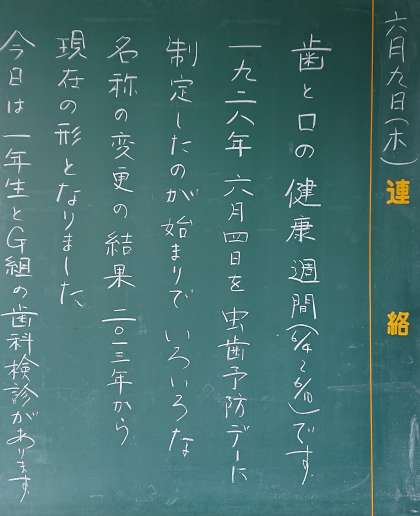 六月九日(木)
連絡
歯と口の健康週間(6/4~6/10)です
一九二八年 六月四日を虫歯予防デーに
制定したのが始まりで いろいろな
名称の変更の結果 二〇一三年から
現在の形となりました
今日は 一年生とG組の歯科検診があります